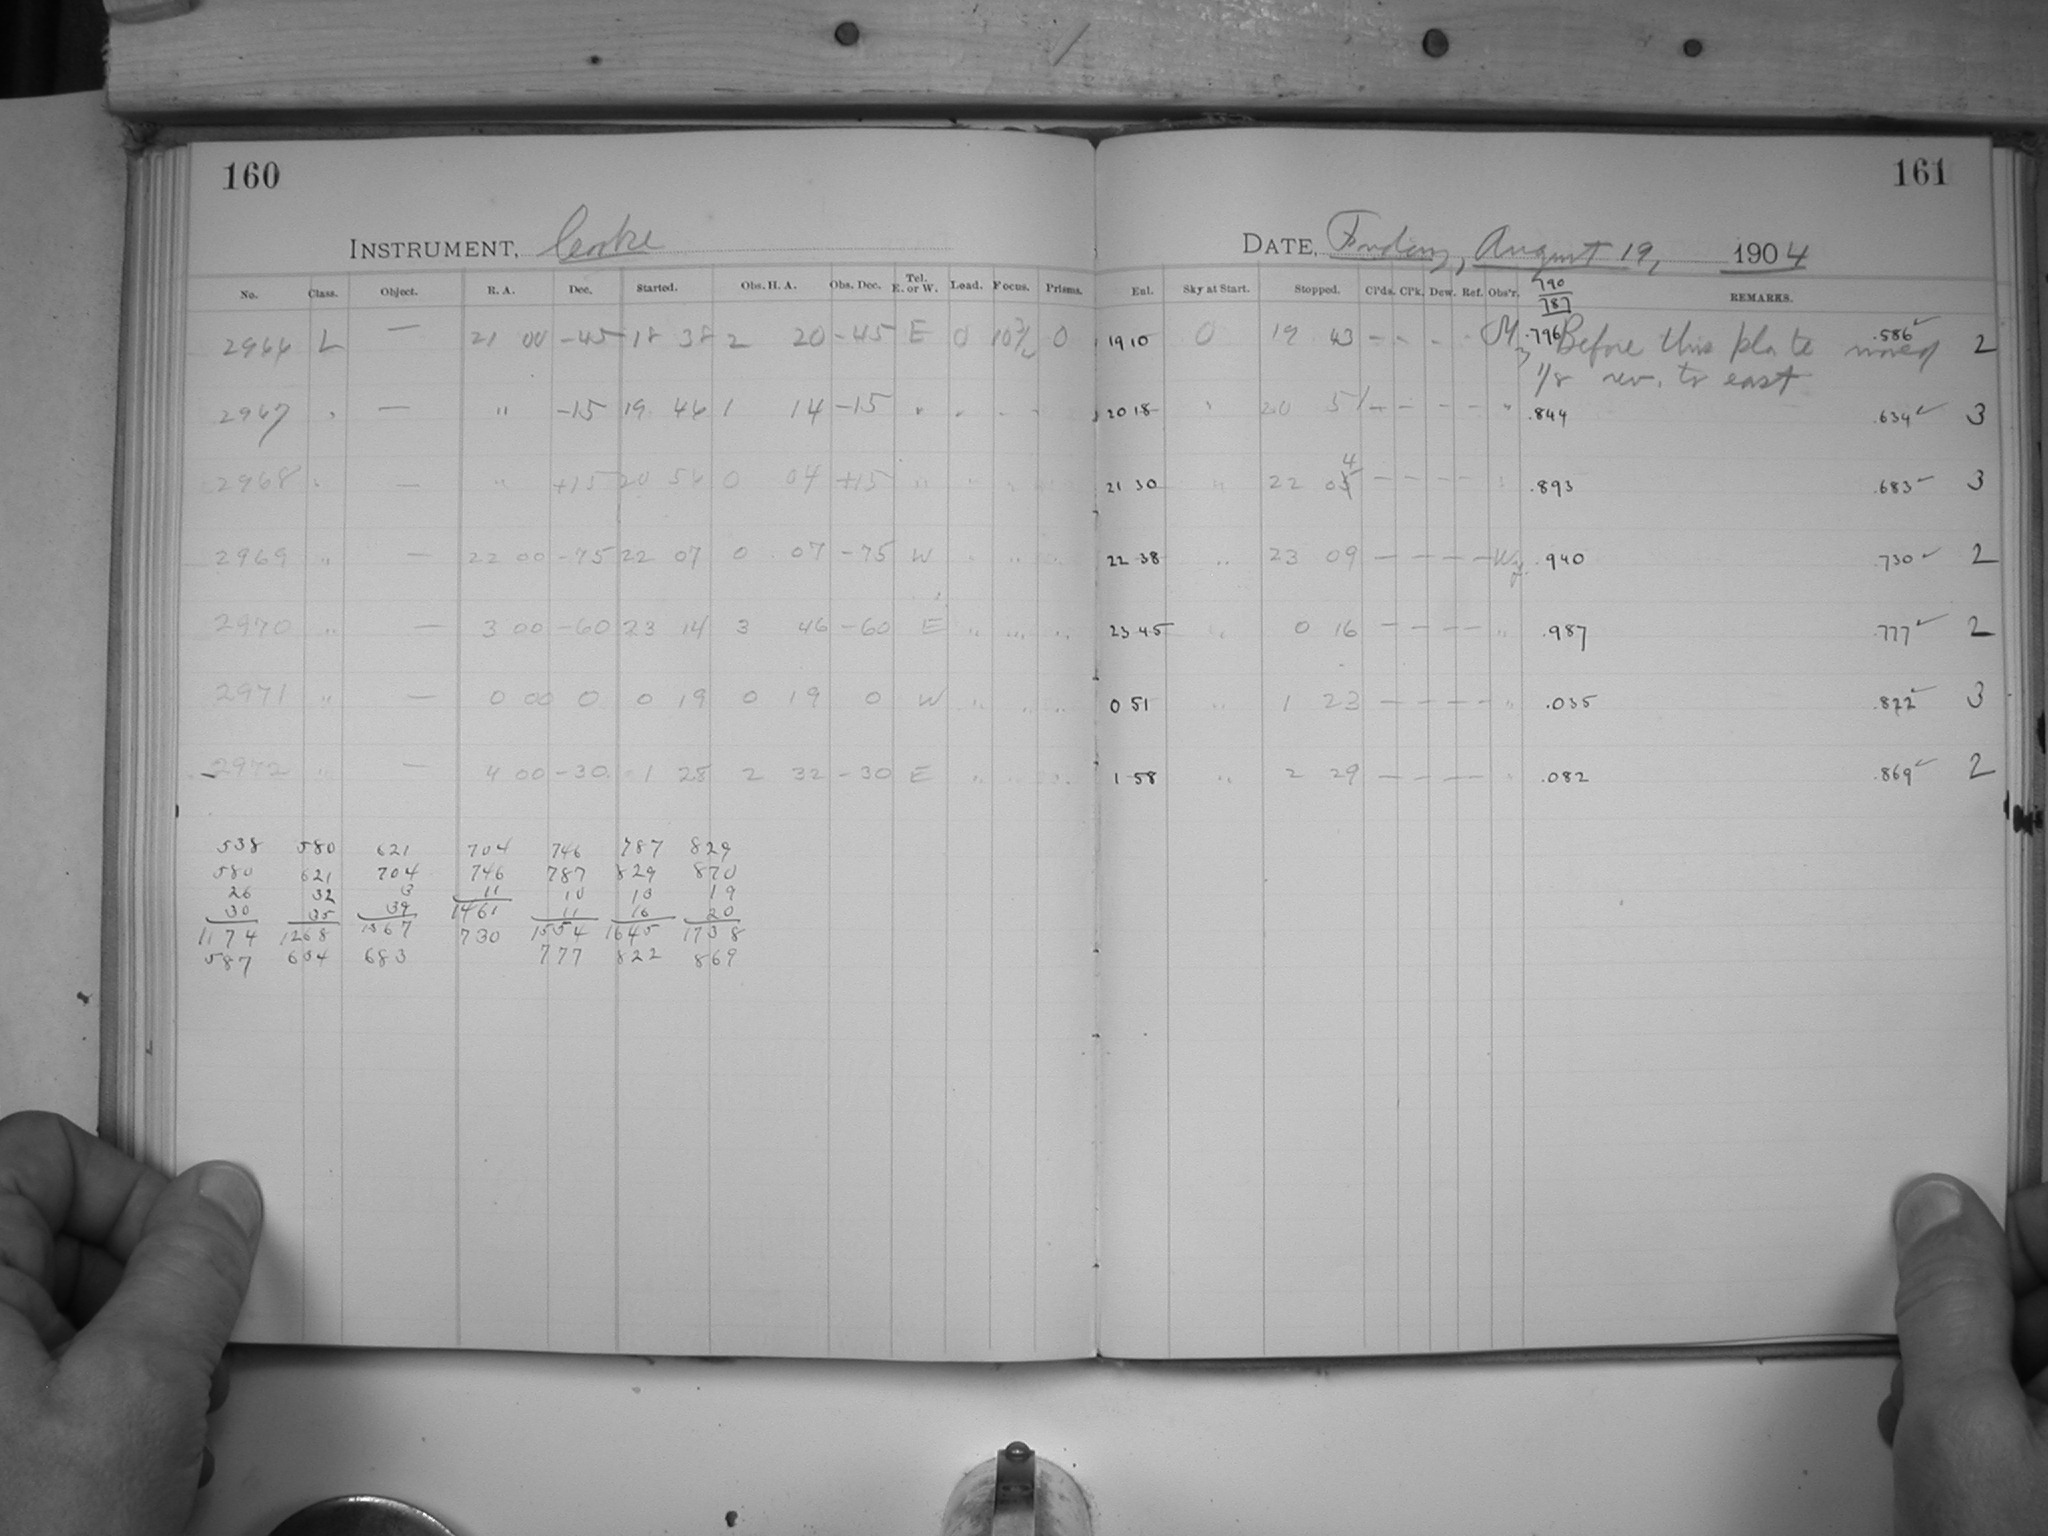 160
161
INSTRUMENT, Cooke
DATE, Friday, August 19, 1904
No. Class. Object. R. A. Dec. Started. Obs. H. A. Obs. Dec. Tel. E. or W. Load. Focus. Prisms. Eul. Sky at Start. Stopped. Cl'ds. Cl'k. Dew. Ref. Obs'r. 790 787 REMARKS.
2966 L — 21 00 -45 18 38 2 20 -45 E 0 0 19 10 0 19 43 - - - - .796 Before this plate moved .586 ✓ 2
1/8 rev. to east
2967 " — " -15 19 46 1 14 -15 " " - - 20 18 " 20 51 - - - - " .844 .634 ✓ 3
2968 " — " +15 20 54 0 04 +15 " " " " 21 30 " 22 05 4 - - - - " .893 .683 ✓ 3
2969 " — 22 00 -75 22 07 0 07 -75 W " " " 22 38 " 23 09 — — — — .940 .730 ✓ 2
2970 " — 3 00 -60 23 14 3 46 -60 E " " " 23 45 " 0 16 — — — — " .987 .777 ✓ 2
2971 " — 0 00 0 0 19 0 19 0 W " " " 0 51 " 1 23 — — — — " .035 .822 ✓ 3
2972 " — 4 00 -30 1 28 2 32 -30 E " " " 1 58 " 2 29 — — — — " .082 .869 ✓ 2
538 580 621 704 746 787 829
580 621 704 746 787 829 870
26 32 3 11 10 13 19
30 35 39 1461 11 16 20
1174 1268 1367 730 1554 1645 1738
587 634 683 777 822 869